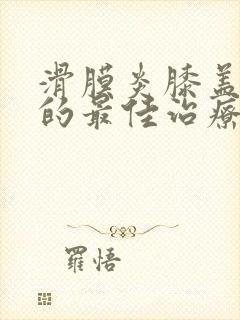 滑膜炎膝盖
的最佳治疗
罗悟